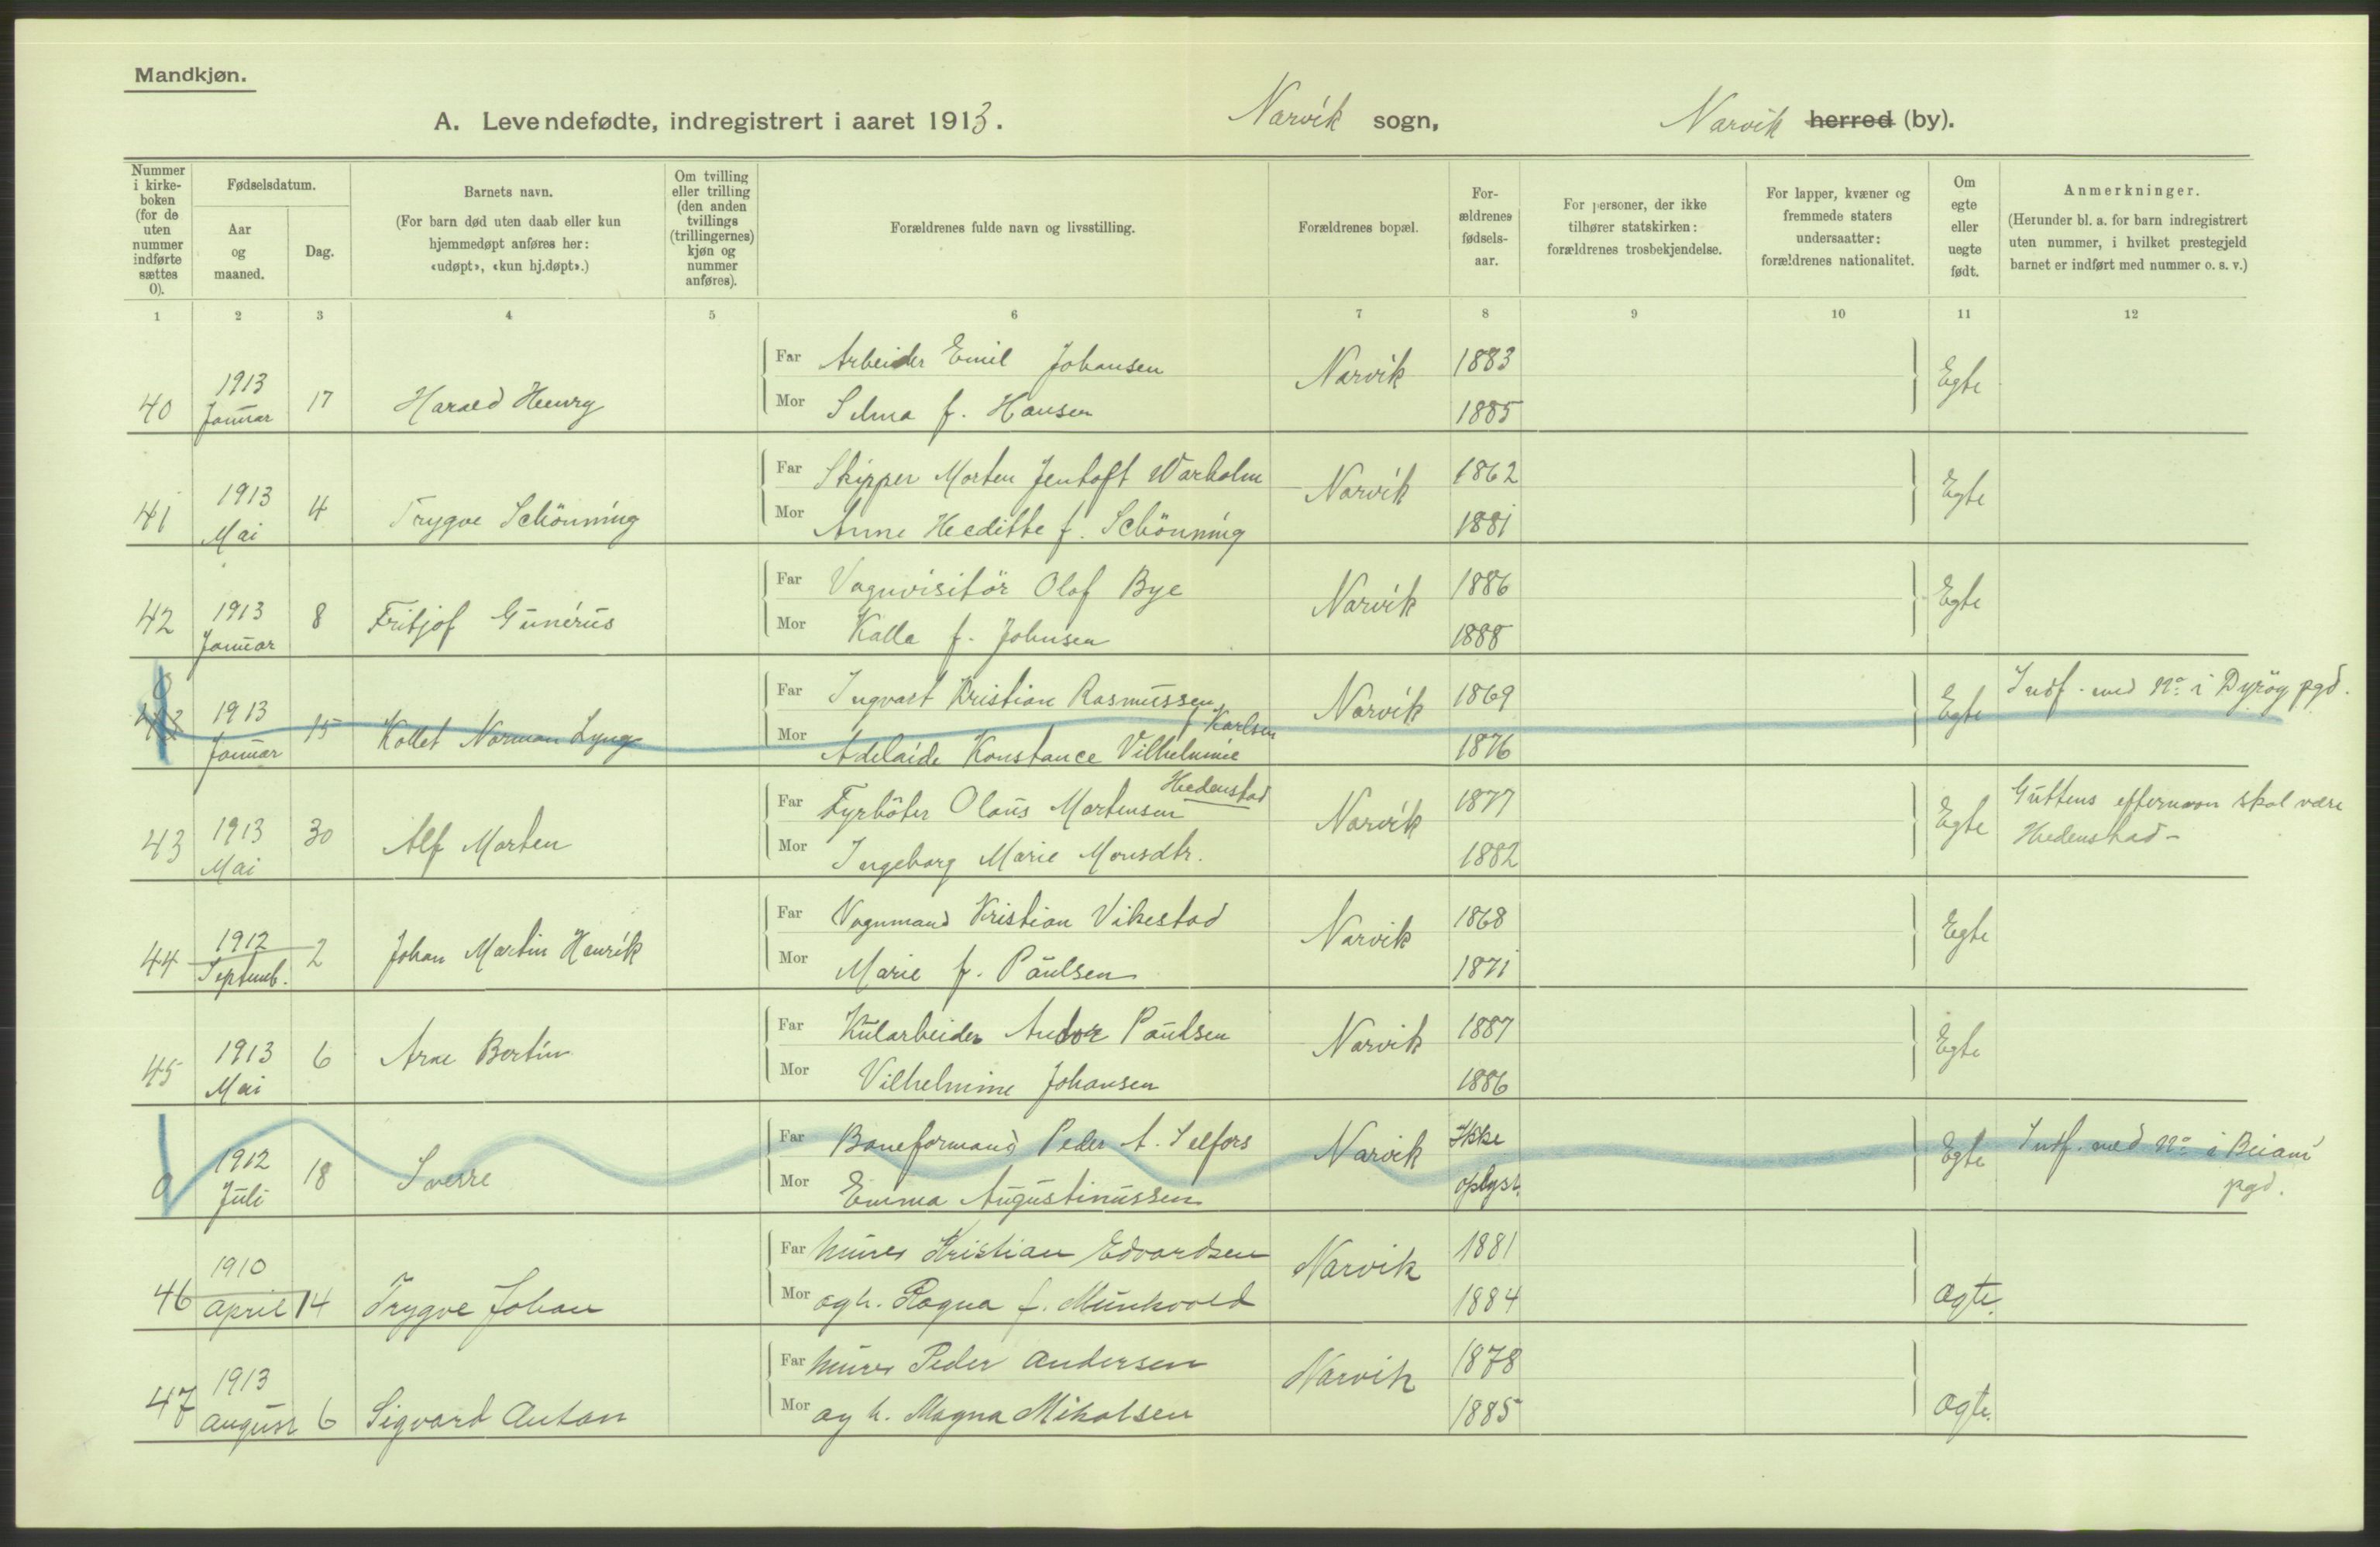 Mandkjøn.
A. Levendefødte, indregistrert i aaret 1913. Narvik sogn, Narvik herred (by).
Nummer i kirkeboken (for de uten nummer indførte sættes 0).
Fødselsdatum.
Aar og maaned.
Dag.
Barnets navn.
(For barn død uten daab eller kun hjemmedøpt anføres her: «udøpt», «kun hj.døpt».)
Om tvilling eller trilling (den anden tvillings (trillingernes) kjøn og nummer anføres).
Forældrenes fulde navn og livsstilling.
Forældrenes bopæl.
Forældrenes fødselsaar.
For personer, der ikke tilhører statskirken: forældrenes trosbekjendelse.
For lapper, kvæner og fremmede staters undersaatter: forældrenes nationalitet.
Om egte eller uegte født.
Anmerkninger.
(Herunder bl. a. for barn indregistrert uten nummer, i hvilket prestegjeld barnet er indført med nummer o. s. v.)
1 2 3 4 5 6 7 8 9 10 11 12
40 1913 Januar 17 Harald Henry Far Arbeider Emil Johansen Narvik 1883 Egte
Mor Selma f. Hansen 1885
41 1913 Mai 4 Trygve Schönning Far Skipper Morten Jentoft Warholm Narvik 1862 Egte
Mor Anne Heditte f. Schönning 1881
42 1913 Januar 8 Fritjof Gunerus Far Vognvisitör Olof Bye Narvik 1886 Egte
Mor Kalla f. Johnsen 1888
0 1913 Januar 15 Kollet Norman Lyng Far Ingvart Kristian Rasmussen Narvik 1869 Egte Indf. med No. i Dyröy pgd.
Mor Adelaide Konstance Vilhelmine f. Karlsen 1876
43 1913 Mai 30 Alf Morten Far Fyrböter Olaus Martensen Hedenstad Narvik 1877 Egte Guttens efternavn skal være
Hedenstad -
Mor Ingeborg Marie Monsdtr. 1882
44 1912 Septemb. 2 Johan Martin Henrik Far Vognmand Kristian Vikestad Narvik 1868 Egte
Mor Marie f. Paulsen 1871
45 1913 Mai 6 Arne Bertin Far Kularbeider Andor Paulsen Narvik 1887 Egte
Mor Vilhelmine Johansen 1886
0 1912 Juli 18 Sverre Far Baneformand Peder A. Selfors Narvik Ikke Egte Indf. med No. i Beiarn
pgd.
Mor Emma Augustinussen oplyst.
46 1910 April 14 Trygve Johan Far Murer Kristian Edvardsen Narvik 1881 Ægte.
Mor og h. Ragna f. Munkvold 1884
47 1913 August 6 Sigvard Anton Far Murer Peder Andersen Narvik 1878 Ægte.
Mor og h. Magna Mikalsen 1885